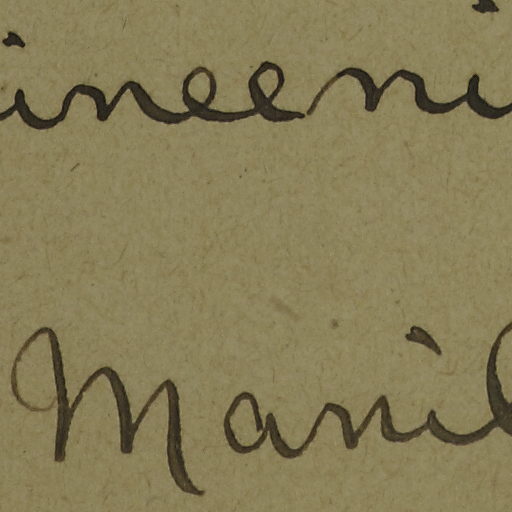 ineeri
Manil